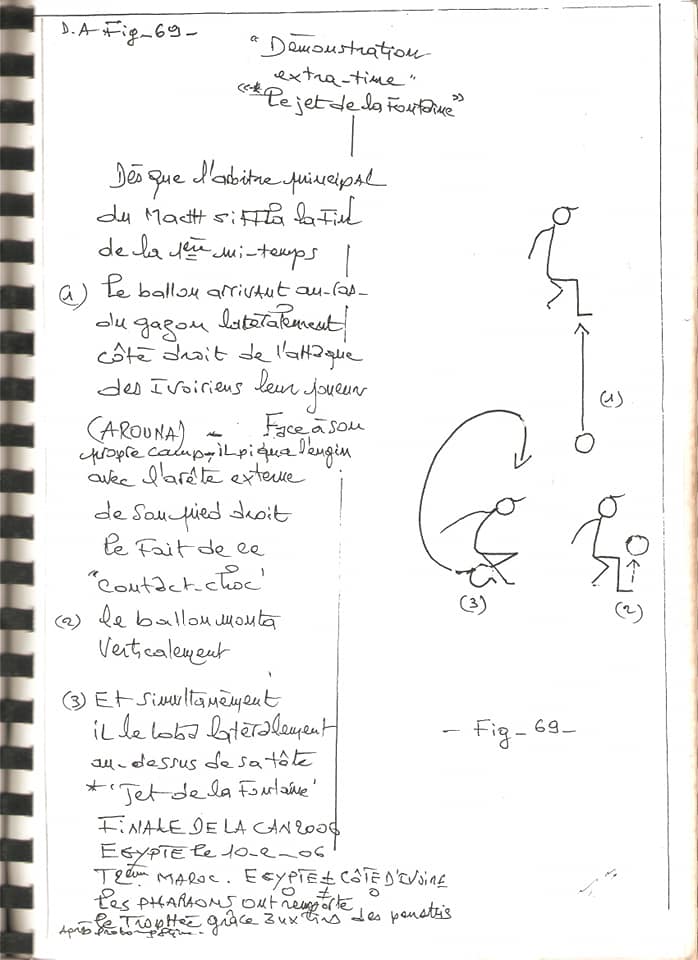 D.A Fig_69_
"Démonstration
extra-time"
«* Le jet de la Fontaine »
Dès que l'arbitre principal
du Match siffla la Fin
de la 1ère mi-temps
(1) Le ballon arrivant au-ras-
du gazon latéralement
côté droit de l'attaque
des Ivoiriens leur joueur
(AROUNA) - Face à son
propre camp, iL piqua l'engin
avec l'arête externe
de son pied droit
Le Fait de ce
"contact-choc"
(2) le ballon monta
Verticalement
(3) Et simultanément
iL le loba latéralement
au-dessus de sa tête
* 'Jet de la Fontaine'
FINALE DE LA CAN 2006
EGYPTE le 10-2-06
MAROC. EGYPTE ± CÔTE D'IVOIRE
0 ± 0
Les PHARAONS ONT remporté
le Trophée grâce aux tirs des penaltis
Après
(1)
(3)
(2)
- Fig-69-